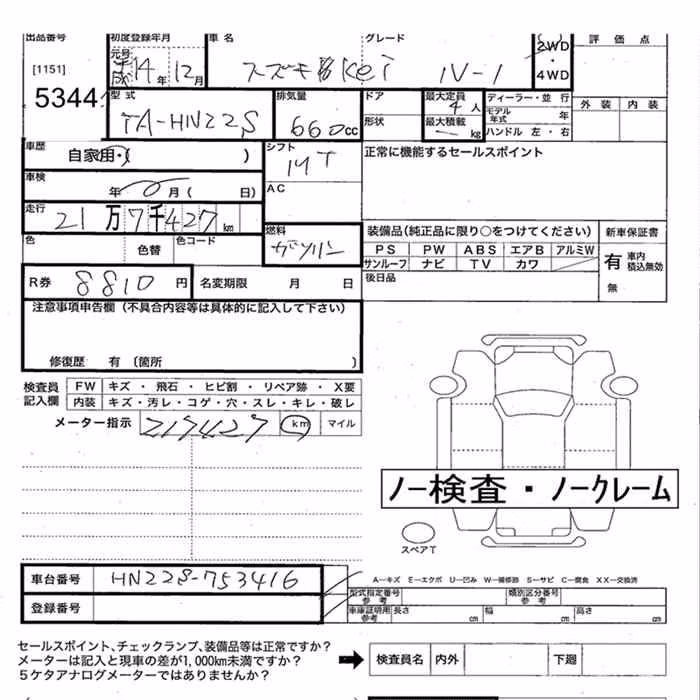 出品番号 初度登録年月 車名 グレード 2WD・4WD 評価点
元号 平成 14年12月 スズキ Kei
[1151]
5344
型式 TA-HN22S 排気量 660cc ドア 形状 最大定員 4人 最大積載 kg ディーラー・並行 モデル年式 年 ハンドル 左・右 外装 内装
車歴 自家用・( ) シフト 正常に機能するセールスポイント
車検 年 0月( 日) AC
走行 21万7千427km
色 色替 色コード 燃料 ガソリン 装備品(純正品に限り○をつけてください) 新車保証書
PS PW ABS エアB アルミW 有 車内積込無効
サンルーフ ナビ TV カワ
R券 8810円 名変期限 月 日 後日品 無
注意事項申告欄(不具合内容等は具体的に記入して下さい)
修復歴 有(箇所 )
検査員記入欄 FW キズ・飛石・ヒビ割・リペア跡・X要
内装 キズ・汚レ・コゲ・穴・スレ・キレ・破レ
メーター指示 217427 km マイル
ノー検査・ノークレーム
スペアT
車台番号 HN22S-753416 A-キズ E-エクボ U-凹み W-補修跡 S-サビ C-腐食 XX-交換済
型式指定番号 参考 類別区分番号 参考
登録番号 車庫証明用参考 長さ cm 幅 cm 高さ cm
セールスポイント、チェックランプ、装備品等は正常ですか?
メーターは記入と現車の差が1,000km未満ですか? 検査員名 内外 下廻
5ケタアナログメーターではありませんか?